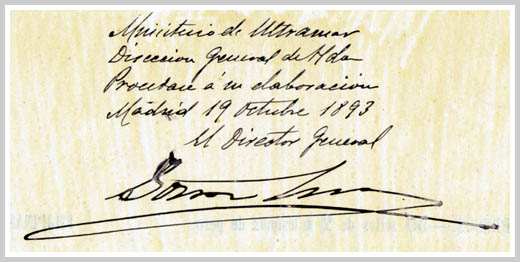 Ministerio de Ultramar
Direccion General de Hda
Procedase á su elaboración
Madrid 19 Octubre 1893
El Director General